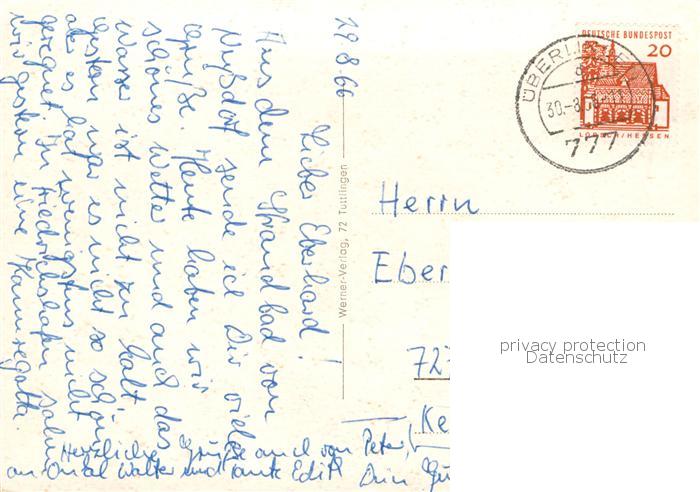 29.8.66
Lieber Eberhard!
Aus dem Strandbad von
Nußdorf sende ich Dir viele
Grüße. Heute haben wir
schönes Wetter und auch das
Wasser ist nicht zu kalt.
Gestern war es nicht so schön
aber es hat wenigstens nicht
geregnet. In Friedrichshafen sahen
wir gestern eine Kanuregatta.
Herzliche Grüße auch von Peter,
an Onkel Walter und Tante Edith Dein
Werner-Verlag, 72 Tuttlingen
DEUTSCHE BUNDESPOST
20
LORSCH/HESSEN
ÜBERLIN
30.-8.
777
Herrn
Eber
72
Ke
privacy protection
Datenschutz